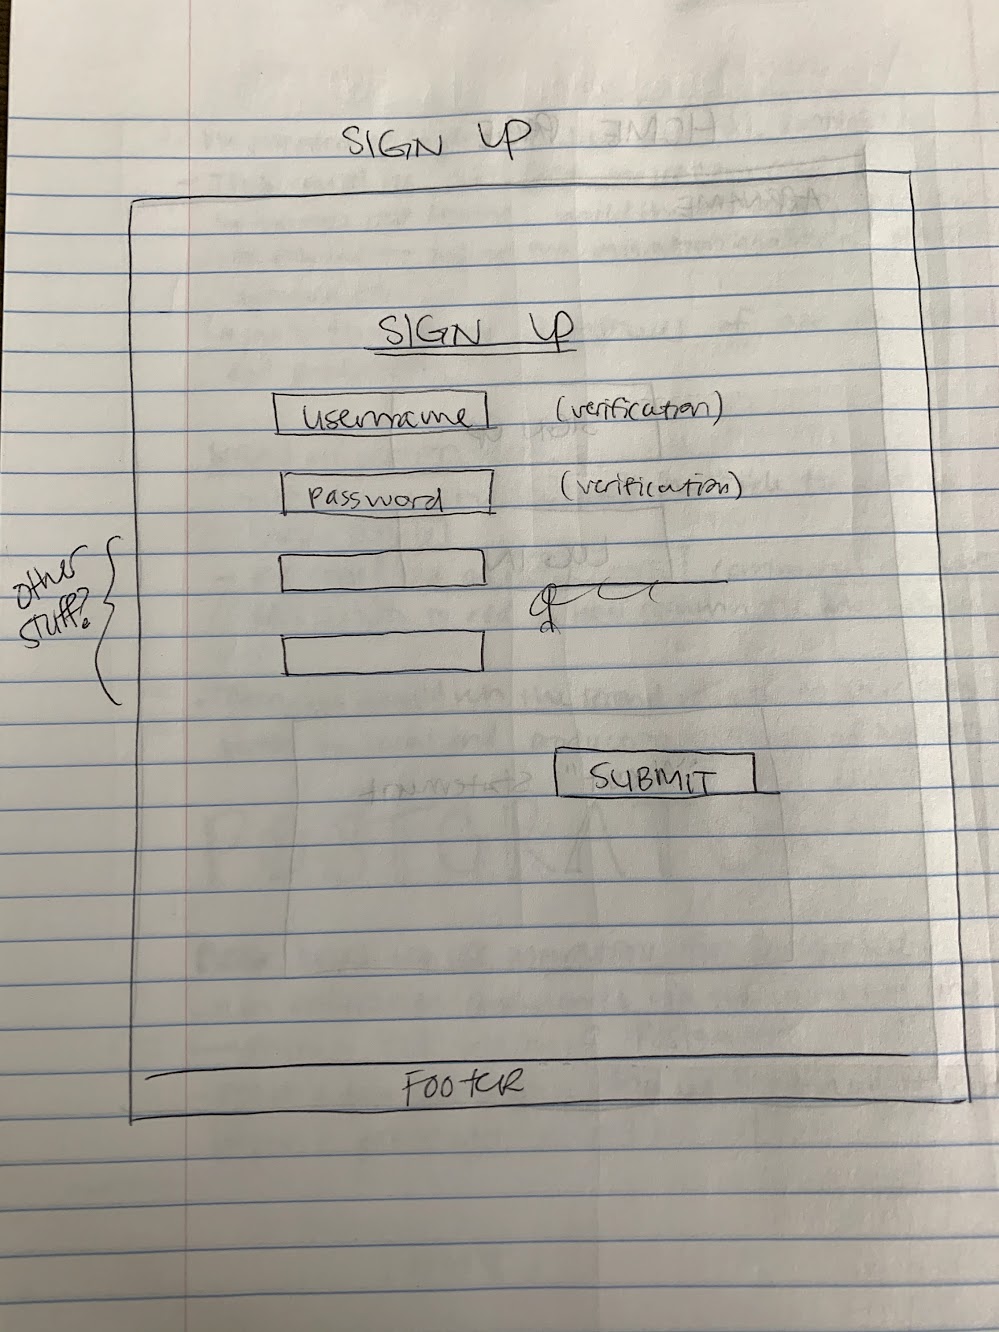 SIGN UP
SIGN UP
username (verification)
password (verification)
other
stuff?
SUBMIT
FOOTER